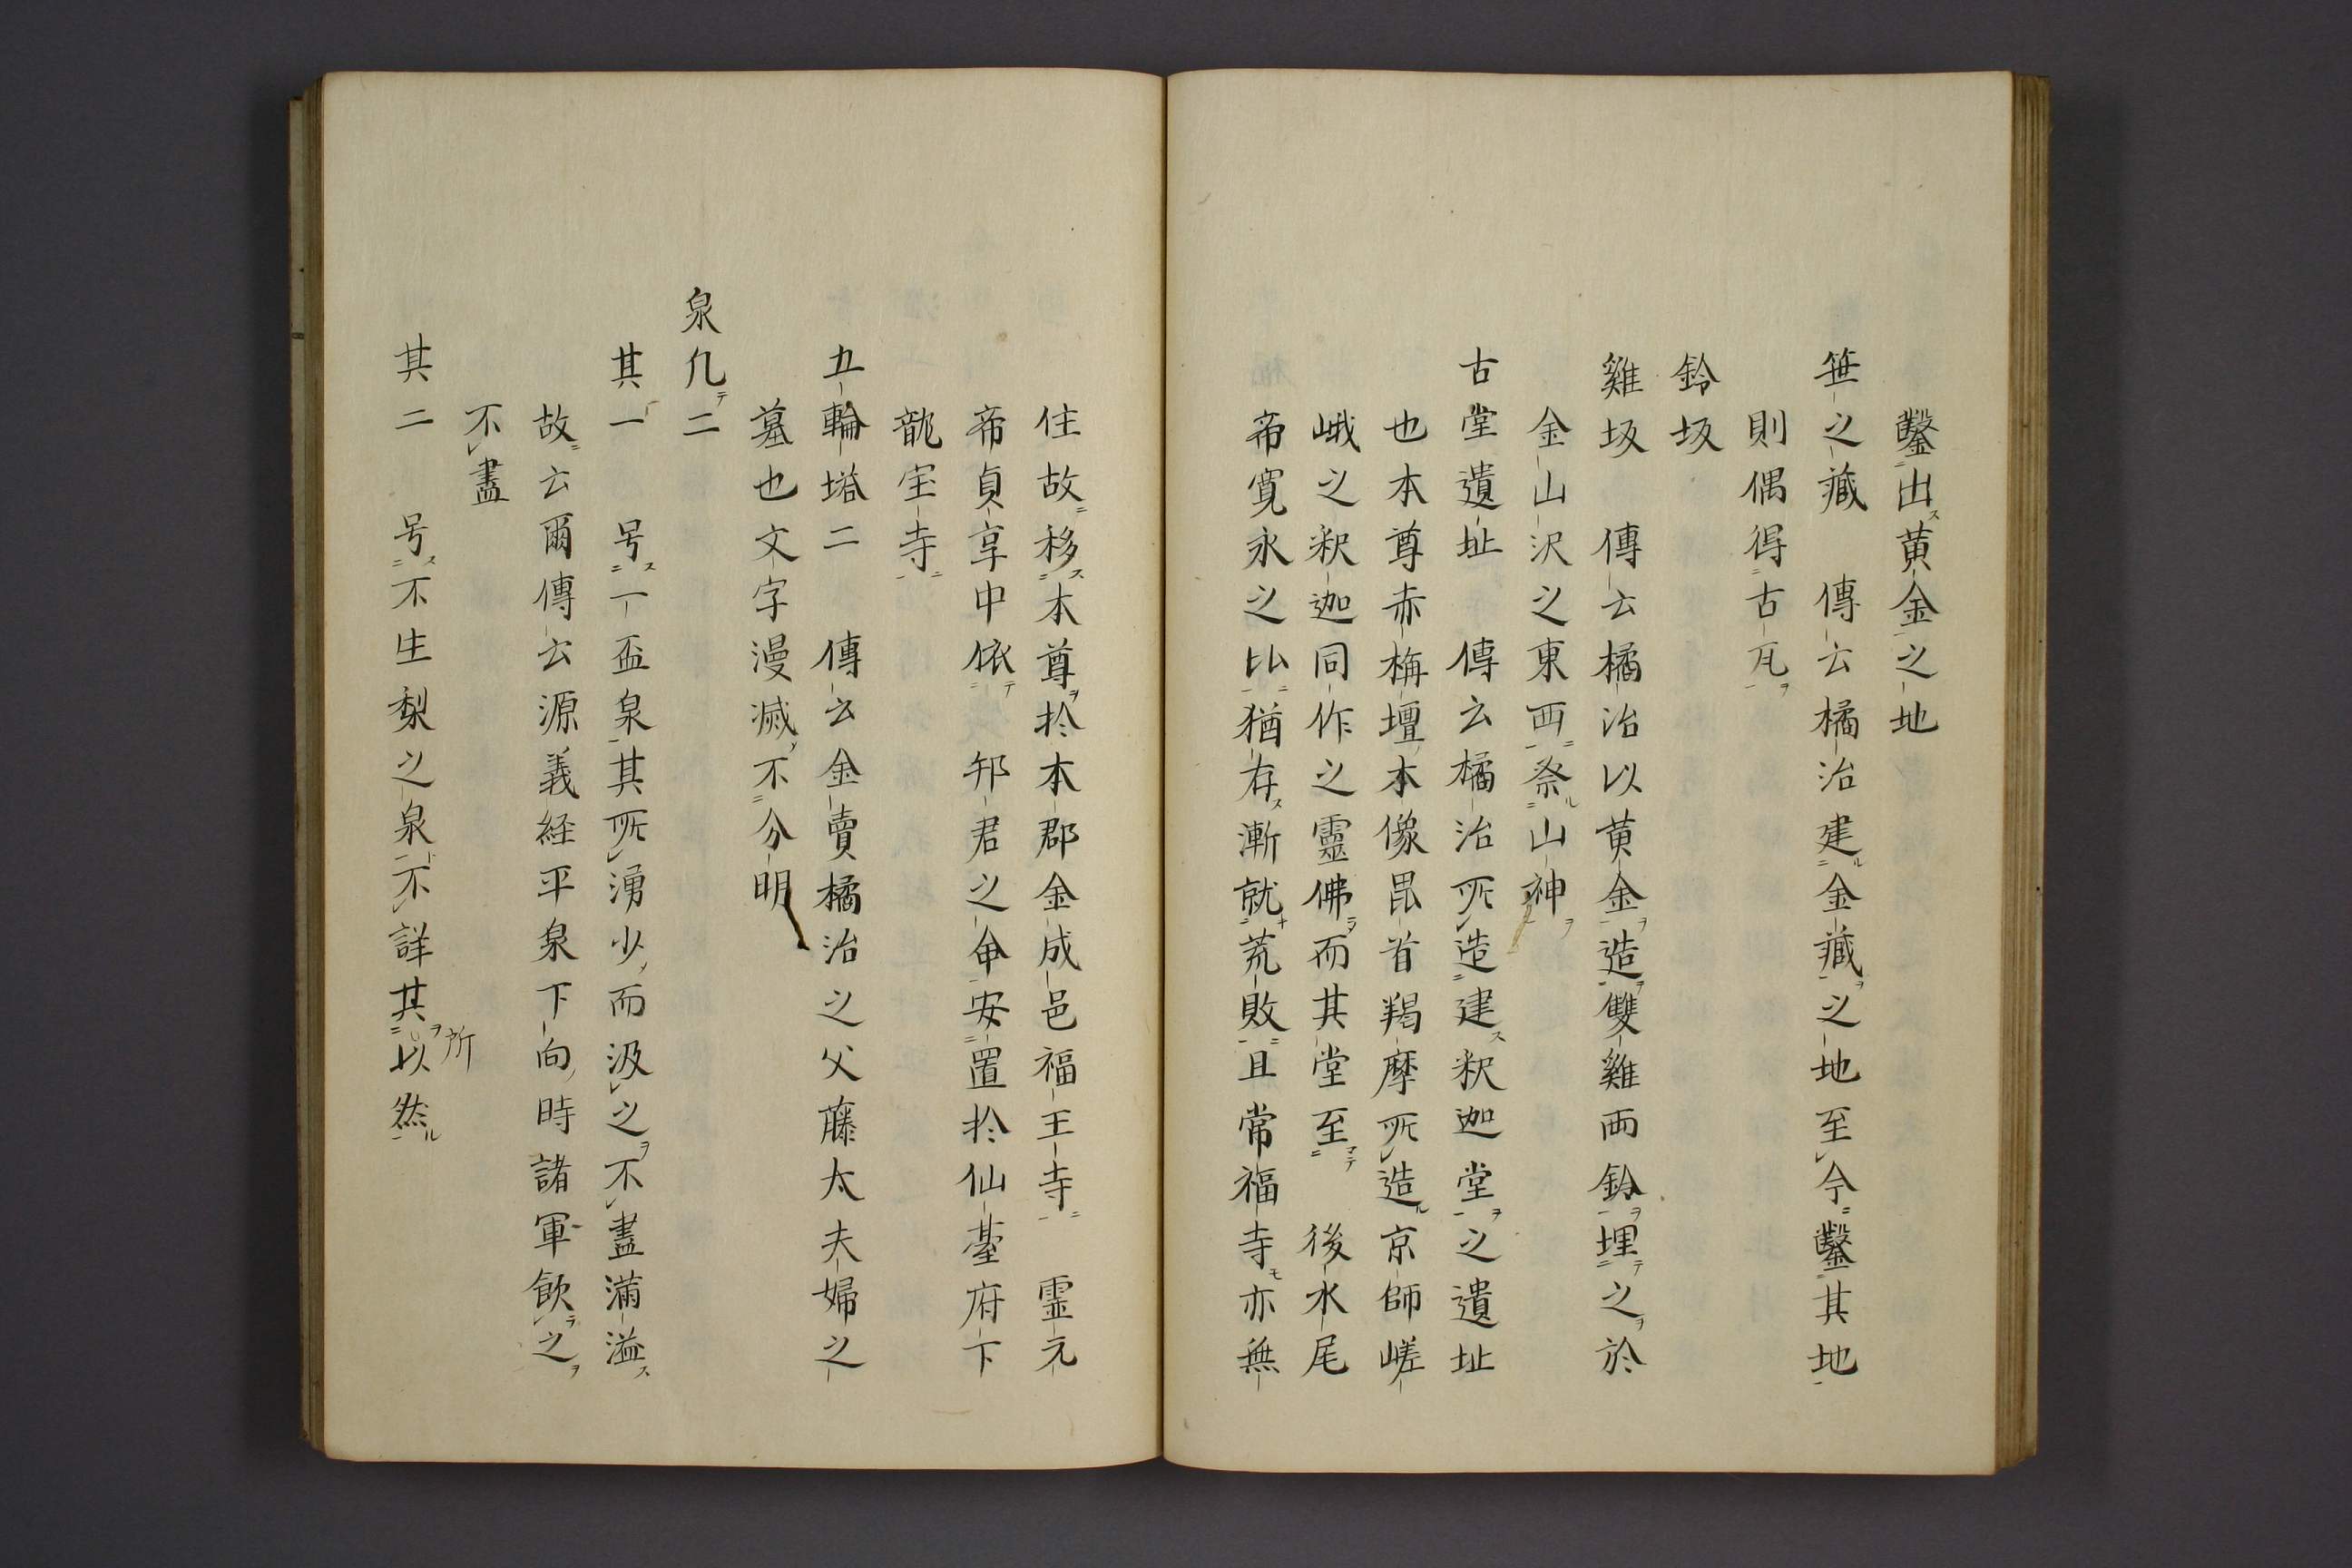 鑿出ス黄金之地
笹之藏　傳云橘治建ル金藏ヲ之地至今鑿其地
則偶得古瓦ヲ
鈴坂
雞坂　傳云橘治以黄金ヲ造雙雞両鈴ヲ埋テ之ヲ於
金山沢之東西ニ祭ル山神ヲ
古堂遺址　傳云橘治所造建ス釈迦堂ヲ之遺址
也本尊赤栴壇ノ本像毘首羯摩所造ル京師嵯
峨之釈迦同作之靈佛ヲ而其堂至マテ　後水尾
帝寛永之比ニ猶存ス漸就ナ荒敗ニ且常福寺モ亦無
住故ニ移ス本尊ヲ於本郡金成邑福王寺ニ　霊元
帝貞享中依テ　邦君之命安置於仙臺府下
龍宝寺ニ
五輪塔二　傳云金賣橘治之父藤太夫婦之
墓也文字漫滅ノ不分明
泉凡テ二
其一　号ス一盃泉其所湧少ノ而汲之ヲ不盡滿溢ス
故ニ云爾傳云源義経平泉下向ノ時諸軍飲ラ之ヲ
不盡
其二　号ス不生梨之泉ト不詳其ヲ所以然ル